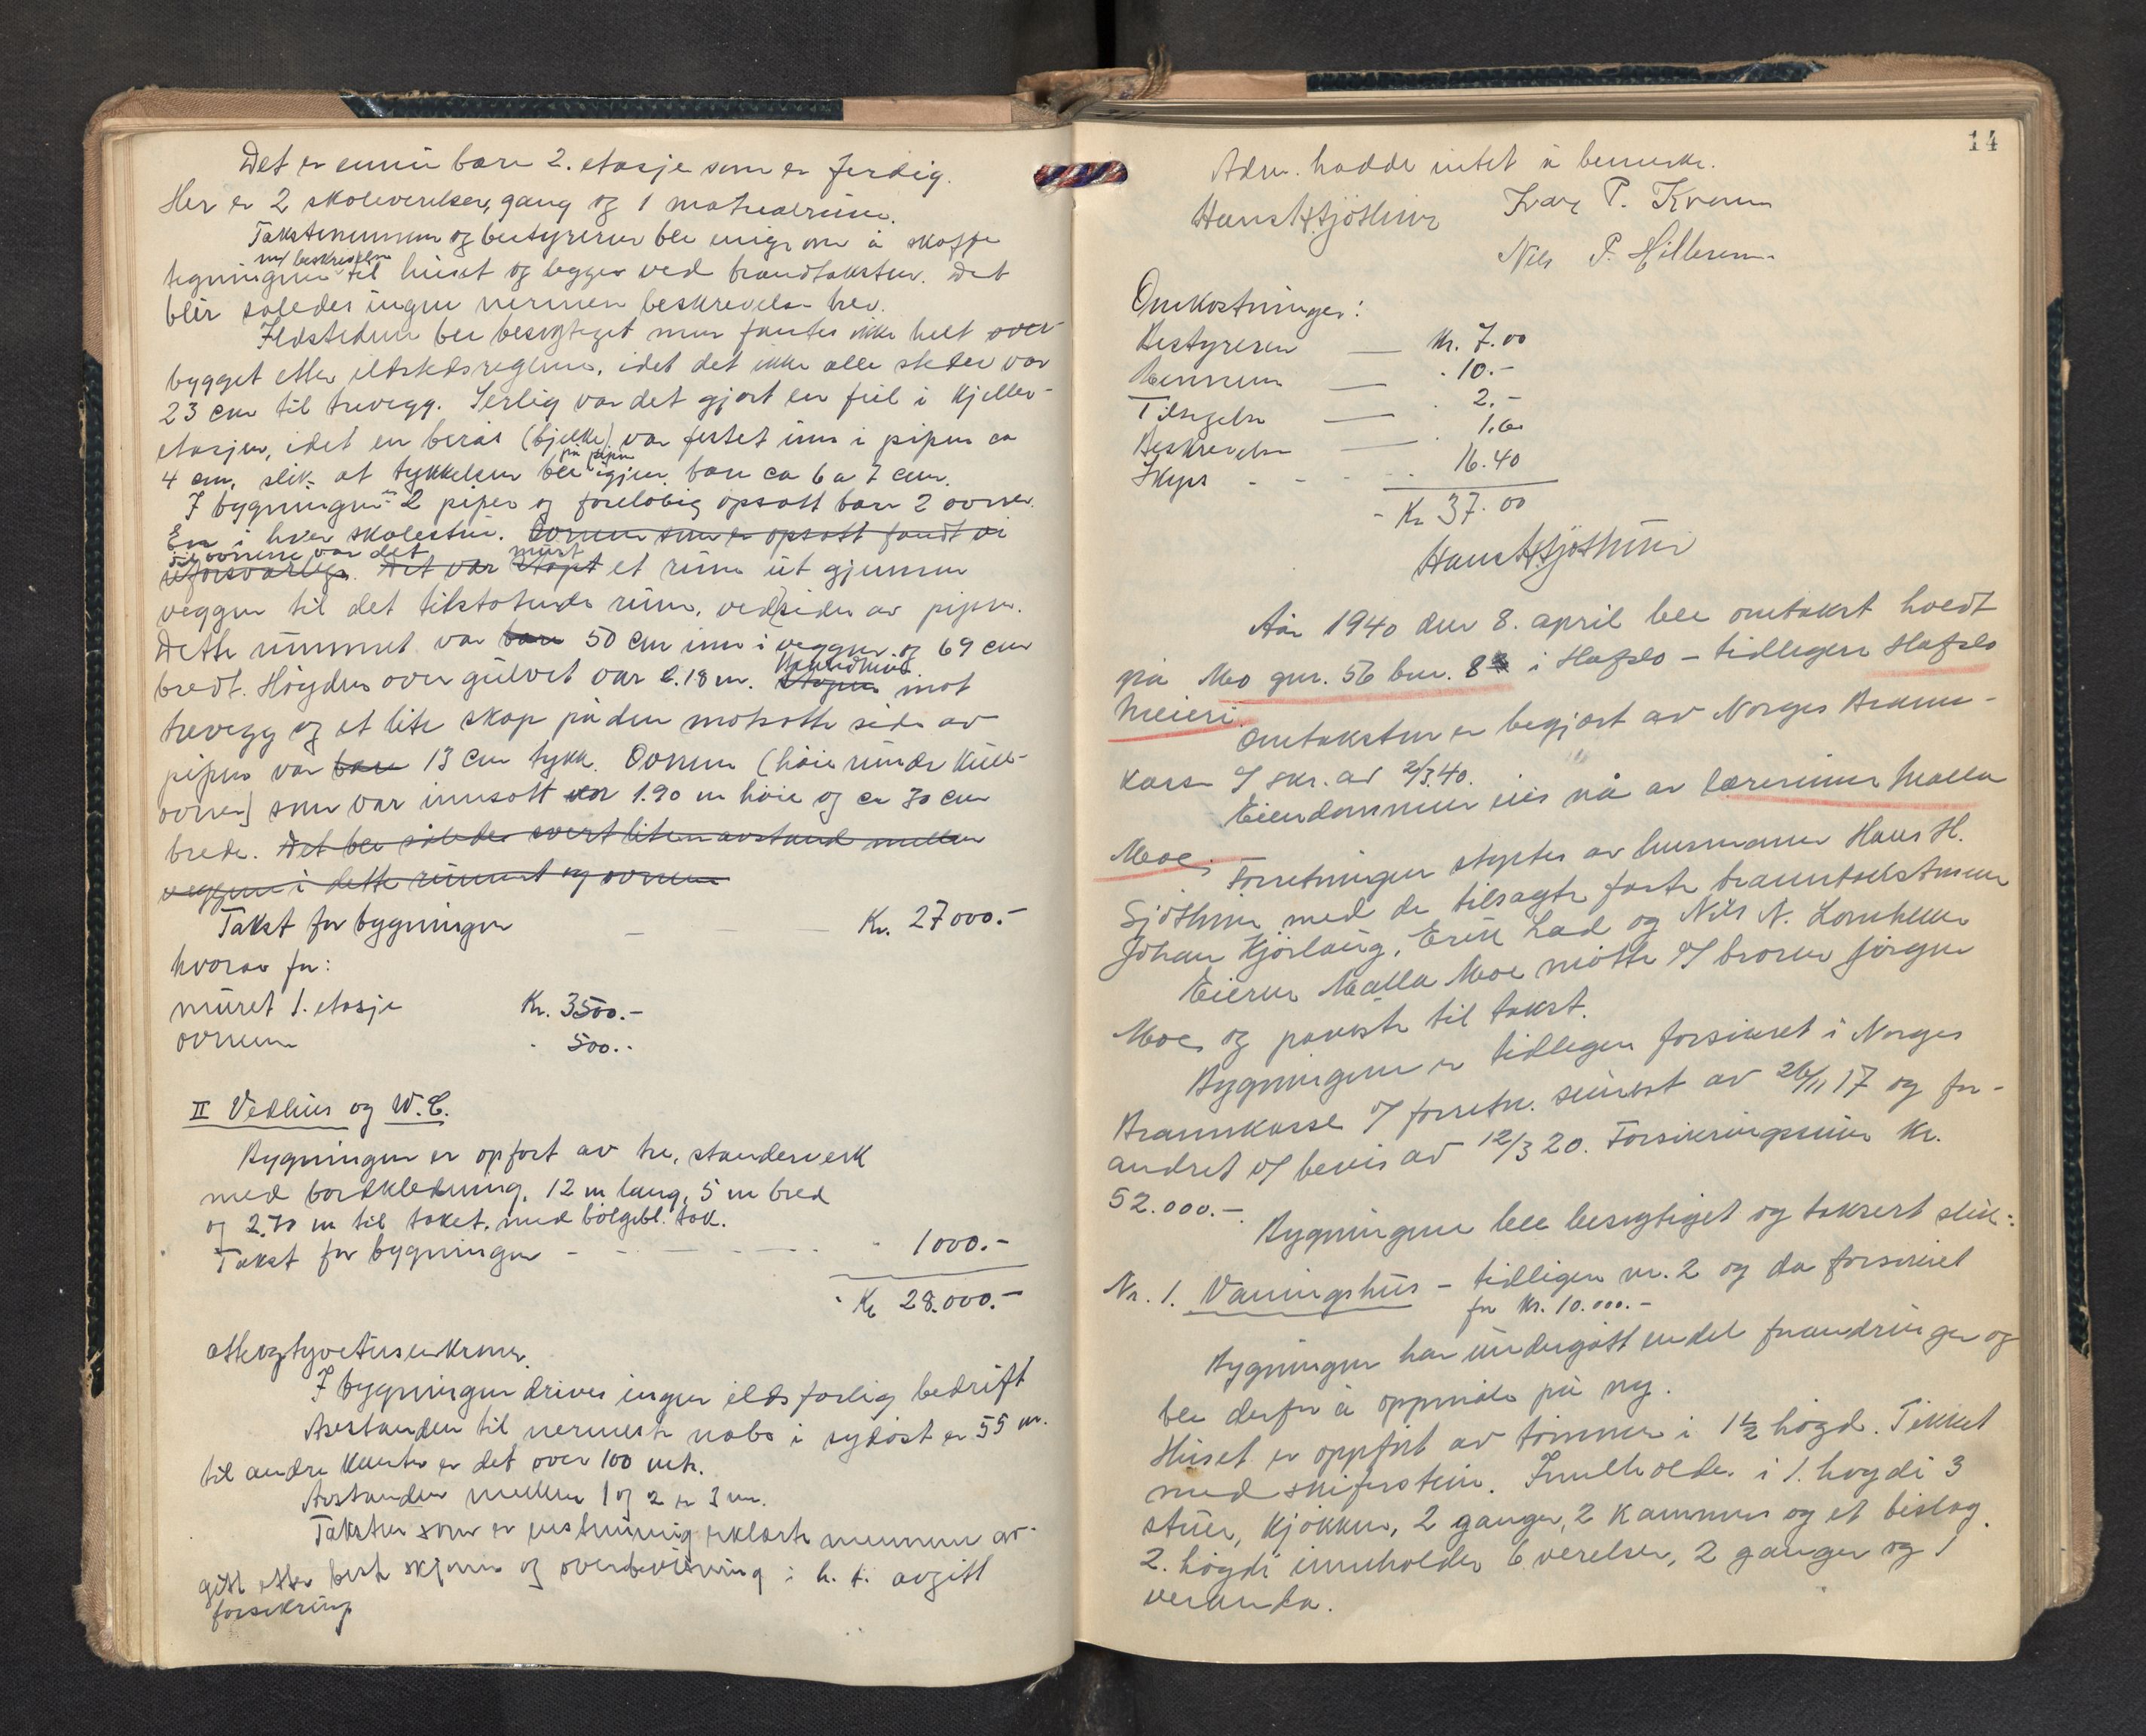 Det er ennu bare 2. etasje som er ferdig.
Her er 2 skoleverelser, gang og 1 materialrum.
Takstmennene og bestyreren ble enige om å skaffe
m/ beskrivelse
tegningene til huset og legges ved brandtaksten. Det
blir således ingen nermere beskrevelse her.
Ildstedene ble besigtiget men fantes ikke helt over-
bygget etter ildstedsreglene, idet det ikke alle steder var
23 cm til trevegg. Serlig var det gjort en feil i Kjeller-
etasjen, idet en berås (bjelke) var festet inn i pipen ca
på pipen
4 cm, slik at tykkelsen ble igjen bare ca 6 a 7 cm.
I bygningen er 2 piper og foreløbig opsatt bare 2 ovner.
En i hver skolestue. Ovnene som er opsatt fandt vi
Til ovnene var det murt
uforsvarlige. Det var støpt et rum ut gjennem
veggen til det tilstøtende rum, ved siden av pipen.
Dette rummet var bare 50 cm inn i veggen og 69 cm
bredt. Høyden over gulvet var 2.18 m. mot
trevegg og et lite skap på den motsatte side av
pipen var bare 13 cm tykk. Ovnene (høie runde kull-
ovner) som var innsatt var 1.90 m høie og ca 30 cm
brede. Det ble således svert liten avstand mellem
veggene i dette rummet og ovnene
Takst for bygningen Kr. 27000.-
hvorav for:
muret 1. etasje Kr. 3500.-
ovnene - 500.-
II Vedhus og W.C.
Bygningen er opført av tre, standerverk
med bordkledning, 12 m lang, 5 m bred
og 2.70 m til taket, med bølgebl. tak.
Takst for bygningen - 1000.-
- Kr 28.000.-
otteogtyvetusenkroner.
I bygningen drives ingen ildsfarlig bedrift
Avstanden til nermeste nabo i sydøst er 55 m.
til andre kanter er det over 100 mtr.
Avstanden mellem 1 og 2 er 3 m.
Taksten som er enstemmig erklærte mennene av-
gitt etter beste skjønn og overbevisning i h. t. avgitt
forsikring
14
Adm. hadde intet å bemerke.
Hans H Sjøthun Ivar P. Kvam
Nils P. Hillerem
Omkostninger:
Bestyreren — Kr. 7.00
Mennene — - 10.-
Tilsigelse — - 2.-
Beskrevelse — - 1.60
Skyss - - - 16.40
- Kr 37.00
Hans H Sjøthun
År 1940 den 8. april ble omtakst holdt
på Mo gnr. 56 bnr. 8 i Hafslo – tidligere Hafslo
Meieri.
Omtaksten er begjært av Norges Brann-
kasse i/ skr. av 2/3.40.
Eiendommen eies nå av lærerinne Malla
Moe.
Forretningen styrtes av lensmann Hans H.
Sjøthun med de tilsagte faste branntakstmenn
Johan Kjørlaug, Erik Lad og Nils N. Lomheim
Eieren Malla Moe møtte v/ broren Jørgen
Moe og påviste til takst.
Bygningene er tidligere forsikret i Norges
Brannkasse i/ forretn. senest av 26/11 17 og for-
andret v/ bevis av 12/3 20. Forsikringssum Kr.
52.000.-.
Bygningene ble besigtiget og taksert slik:
Nr. 1. Vaningshus – tidligere nr. 2 og da forsikret
for Kr. 10.000.-
Bygningen har undergått endel forandringer og
ble derfor å oppmåle på ny.
Huset er oppført av tømmer i 1½ høgd. Tekket
med skiferstein. Innholder i 1. høgdi 3
stuer, kjøkken, 2 ganger, 2 kammers og et bislag.
2. høgdi innholder 6 verelser, 2 ganger og 1
veranda.